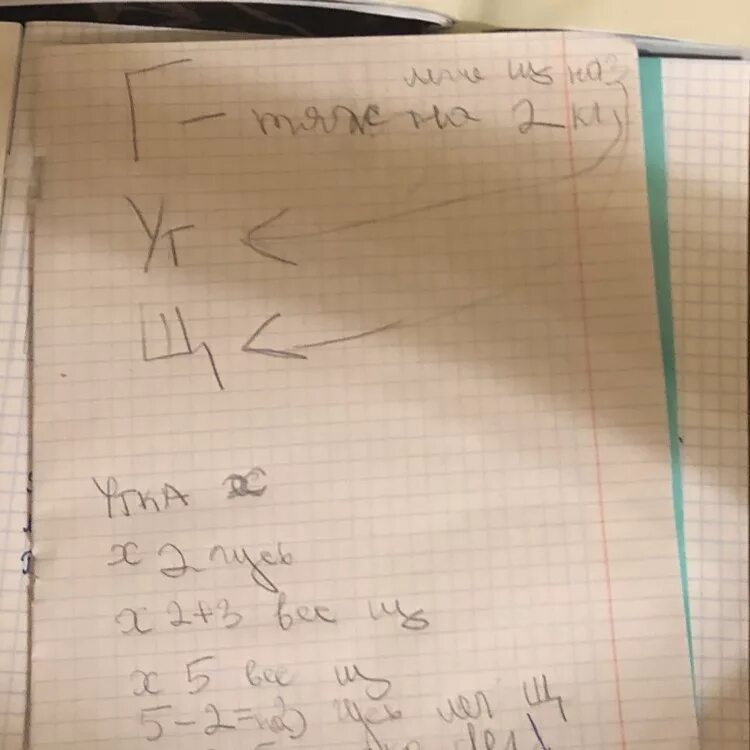 на 3
Г - тяж на 2 кг
Ут
Щ
УТКА х
х 2 гусь
х 2+3 вес щ
х 5 вес щ
5-2= гусь Щ